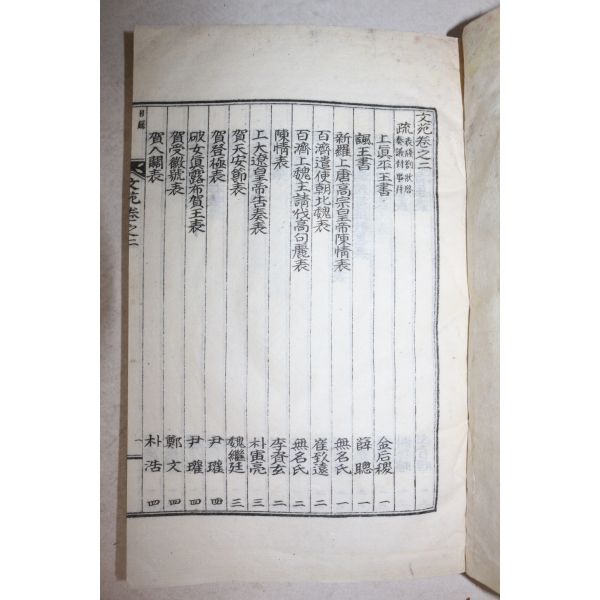 文苑卷之三
疏 表 箚 狀 啓 奏 議 封事
上眞平王書 金后稷 一
諷王書 薛聰 一
新羅上唐高宗皇帝陳情表 無名氏 一
百濟遣使朝北魏表 崔致遠 二
百濟上魏主請伐高句麗表 無名氏 二
陳情表 李資玄 二
上大遼皇帝告奏表 朴寅亮 三
賀天安節表 魏繼廷 三
賀登極表 尹瓘 四
破女眞露布賀王表 尹瓘 四
賀受徽號表 鄭文 四
賀八關表 朴浩 四
目錄
文苑卷之三
一